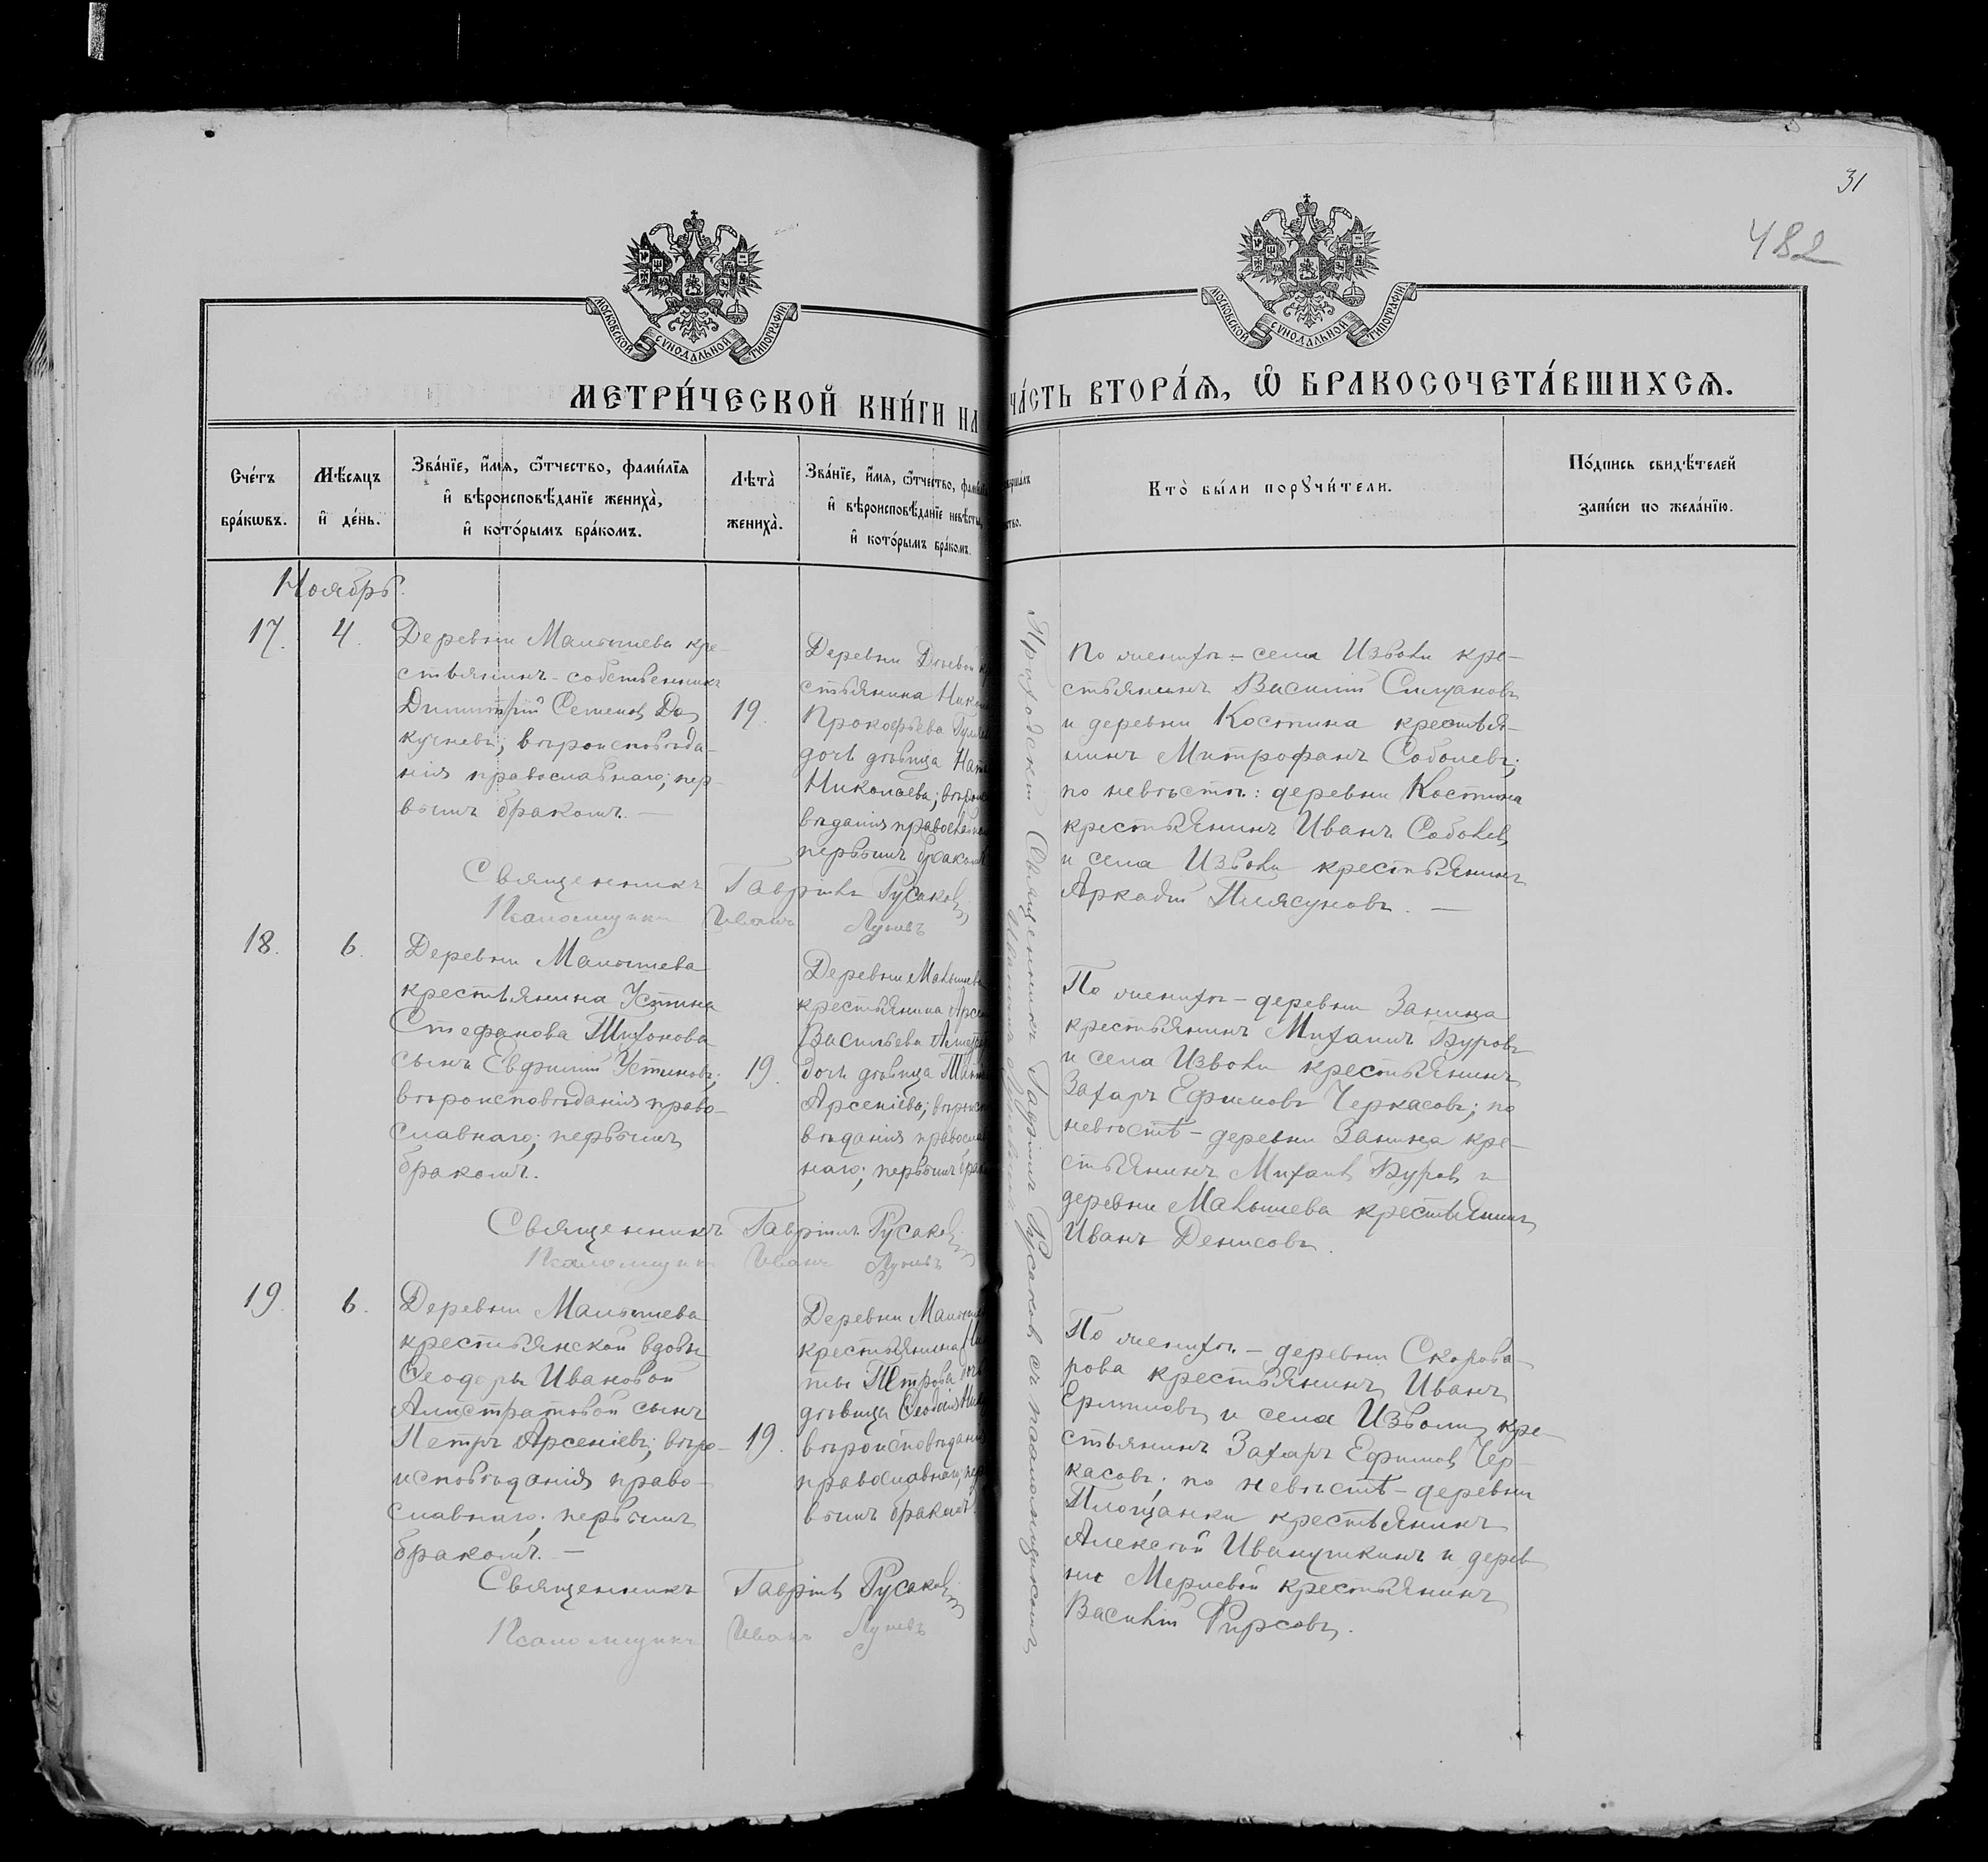 31
482
МОСКОВСКОЙ СѴНОДАЛЬНОЙ ТИПОГРАФІИ
МОСКОВСКОЙ СѴНОДАЛЬНОЙ ТИПОГРАФІИ
МЕТРИ́ЧЕСКОЙ КНИ́ГИ НА
ЧА́СТЬ ВТОРА́Ѧ, Ѽ БРАКОСОЧЕТА́ВШИХСѦ.
Сче́тъ
бра́кѡвъ.
Мѣ́сѧцъ
и҆ де́нь.
Зва́нїе, и҆́мѧ, ѻ҆́тчество, фами́лїѧ
и҆ вѣроисповѣ́данїе жениха̀,
и҆ кото́рымъ бра́комъ.
Лѣта̀
жениха̀.
Зва́нїе, и҆́мѧ, ѻ҆́тчество,
и҆ вѣроисповѣ́данїе невѣ́сты,
и҆ кото́рымъ бра́комъ.
Кто̀ бы́ли порꙋчи́тели.
По́дпись свидѣ́телей
за́писи по жела́нїю.
Ноябрь.
17.
4.
Деревни Малышева кре-
стьянинъ-собственникъ
Димитрій Семеновъ До
кучневъ; вѣроисповѣда-
нія православнаго; пер-
вымъ бракомъ. —
19.
Деревни
стьянина
Прокофьева
дочь дѣвица
Николаева;
вѣданія
первымъ
По женихѣ - села Изволи кре-
стьянинъ Василій
и деревни Костина крестья-
нинъ Митрофанъ Соболевъ;
по невѣстѣ: деревни Костина
крестьянинъ Иванъ Соболевъ
и села Изволи крестьянинъ
Аркадій Плясуновъ. —
Священникъ Гавріилъ Русаковъ
Псаломщикъ Иванъ Луневъ
18.
6.
Деревни Малышева
крестьянина Устина
Стефанова Тихонова
сынъ Евфимій Устиновъ;
вѣроисповѣданія право-
славнаго; первымъ
бракомъ.
19.
Деревни Малышева
крестьянина
Васильева
дочь дѣвица
Арсеніева;
вѣданія
наго; первымъ
По женихѣ - деревни Занина
крестьянинъ Михаилъ Буровъ
и села Изволи крестьянинъ
Захаръ Ефимовъ Черкасовъ; по
невѣстѣ - деревни Занина кре-
стьянинъ Михаилъ Буровъ и
деревни Малышева крестьянинъ
Иванъ Денисовъ.
Священникъ Гавріилъ Русаковъ
Псаломщикъ Иванъ Луневъ
19.
6.
Деревни Малышева
крестьянской вдовы
Ѳеодоры Ивановой
Алистратовой сынъ
Петръ Арсеніевъ; вѣро-
исповѣданія право-
славнаго; первымъ
бракомъ. —
19.
Деревни
крестьянина
Петрова
дѣвица
вѣроисповѣданія
православнаго;
вымъ бракомъ.
По женихѣ - деревни Скорова-
рова крестьянинъ Иванъ
Ермиловъ и села Изволи кре-
стьянинъ Захаръ Ефимовъ Чер-
касовъ; по невѣстѣ - деревни
Площанки крестьянинъ
Алексѣй Иванушкинъ и дерев
ни крестьянинъ
Василій Фирсовъ.
Священникъ Гавріилъ Русаковъ
Псаломщикъ Иванъ Луневъ
Приходскій Священникъ Гавріилъ Русаковъ съ псаломщикомъ
Иваномъ Луневымъ